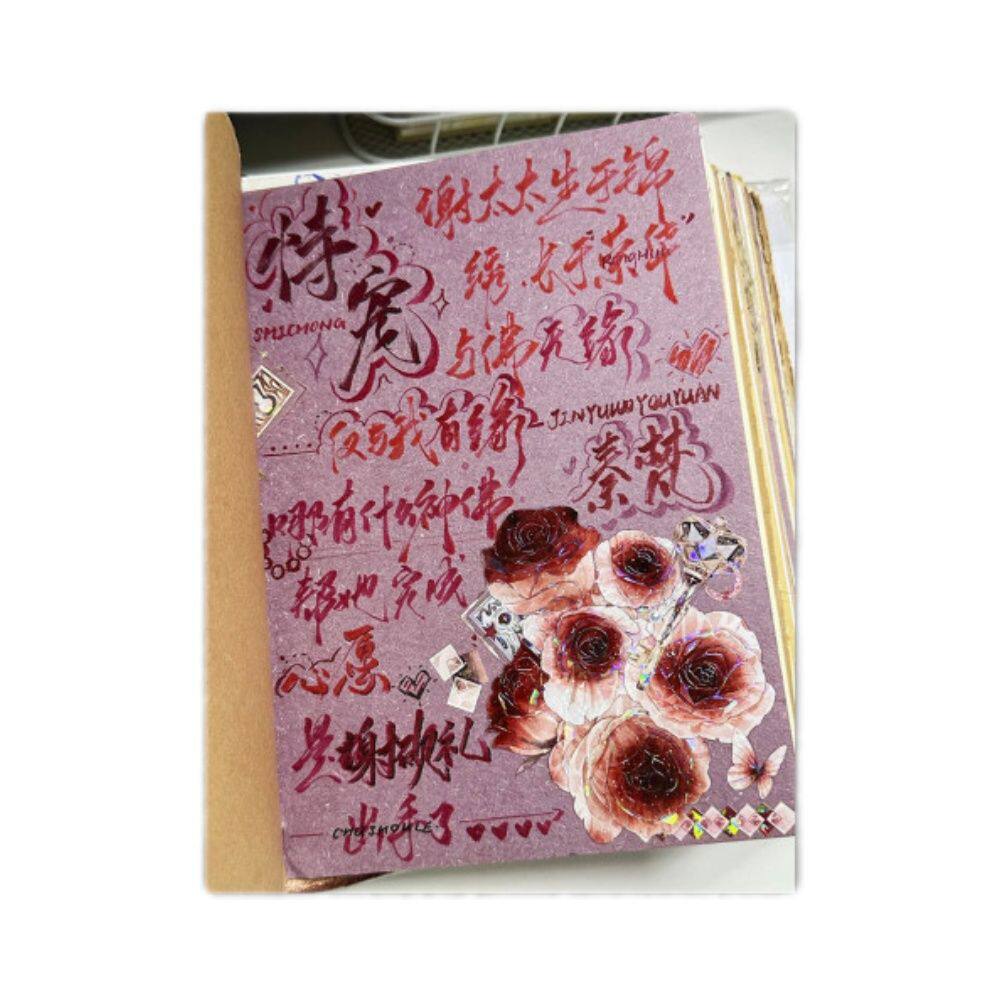 恃宠
SHICHONG
谢太太生于锦
绣，长于荣华
RONGHUA
与佛无缘
仅与我有缘
JINYUWOYOUYUAN
秦梵
哪有什么神佛
帮她完成
心愿
是谢执礼
出手了
CHUSHOULE